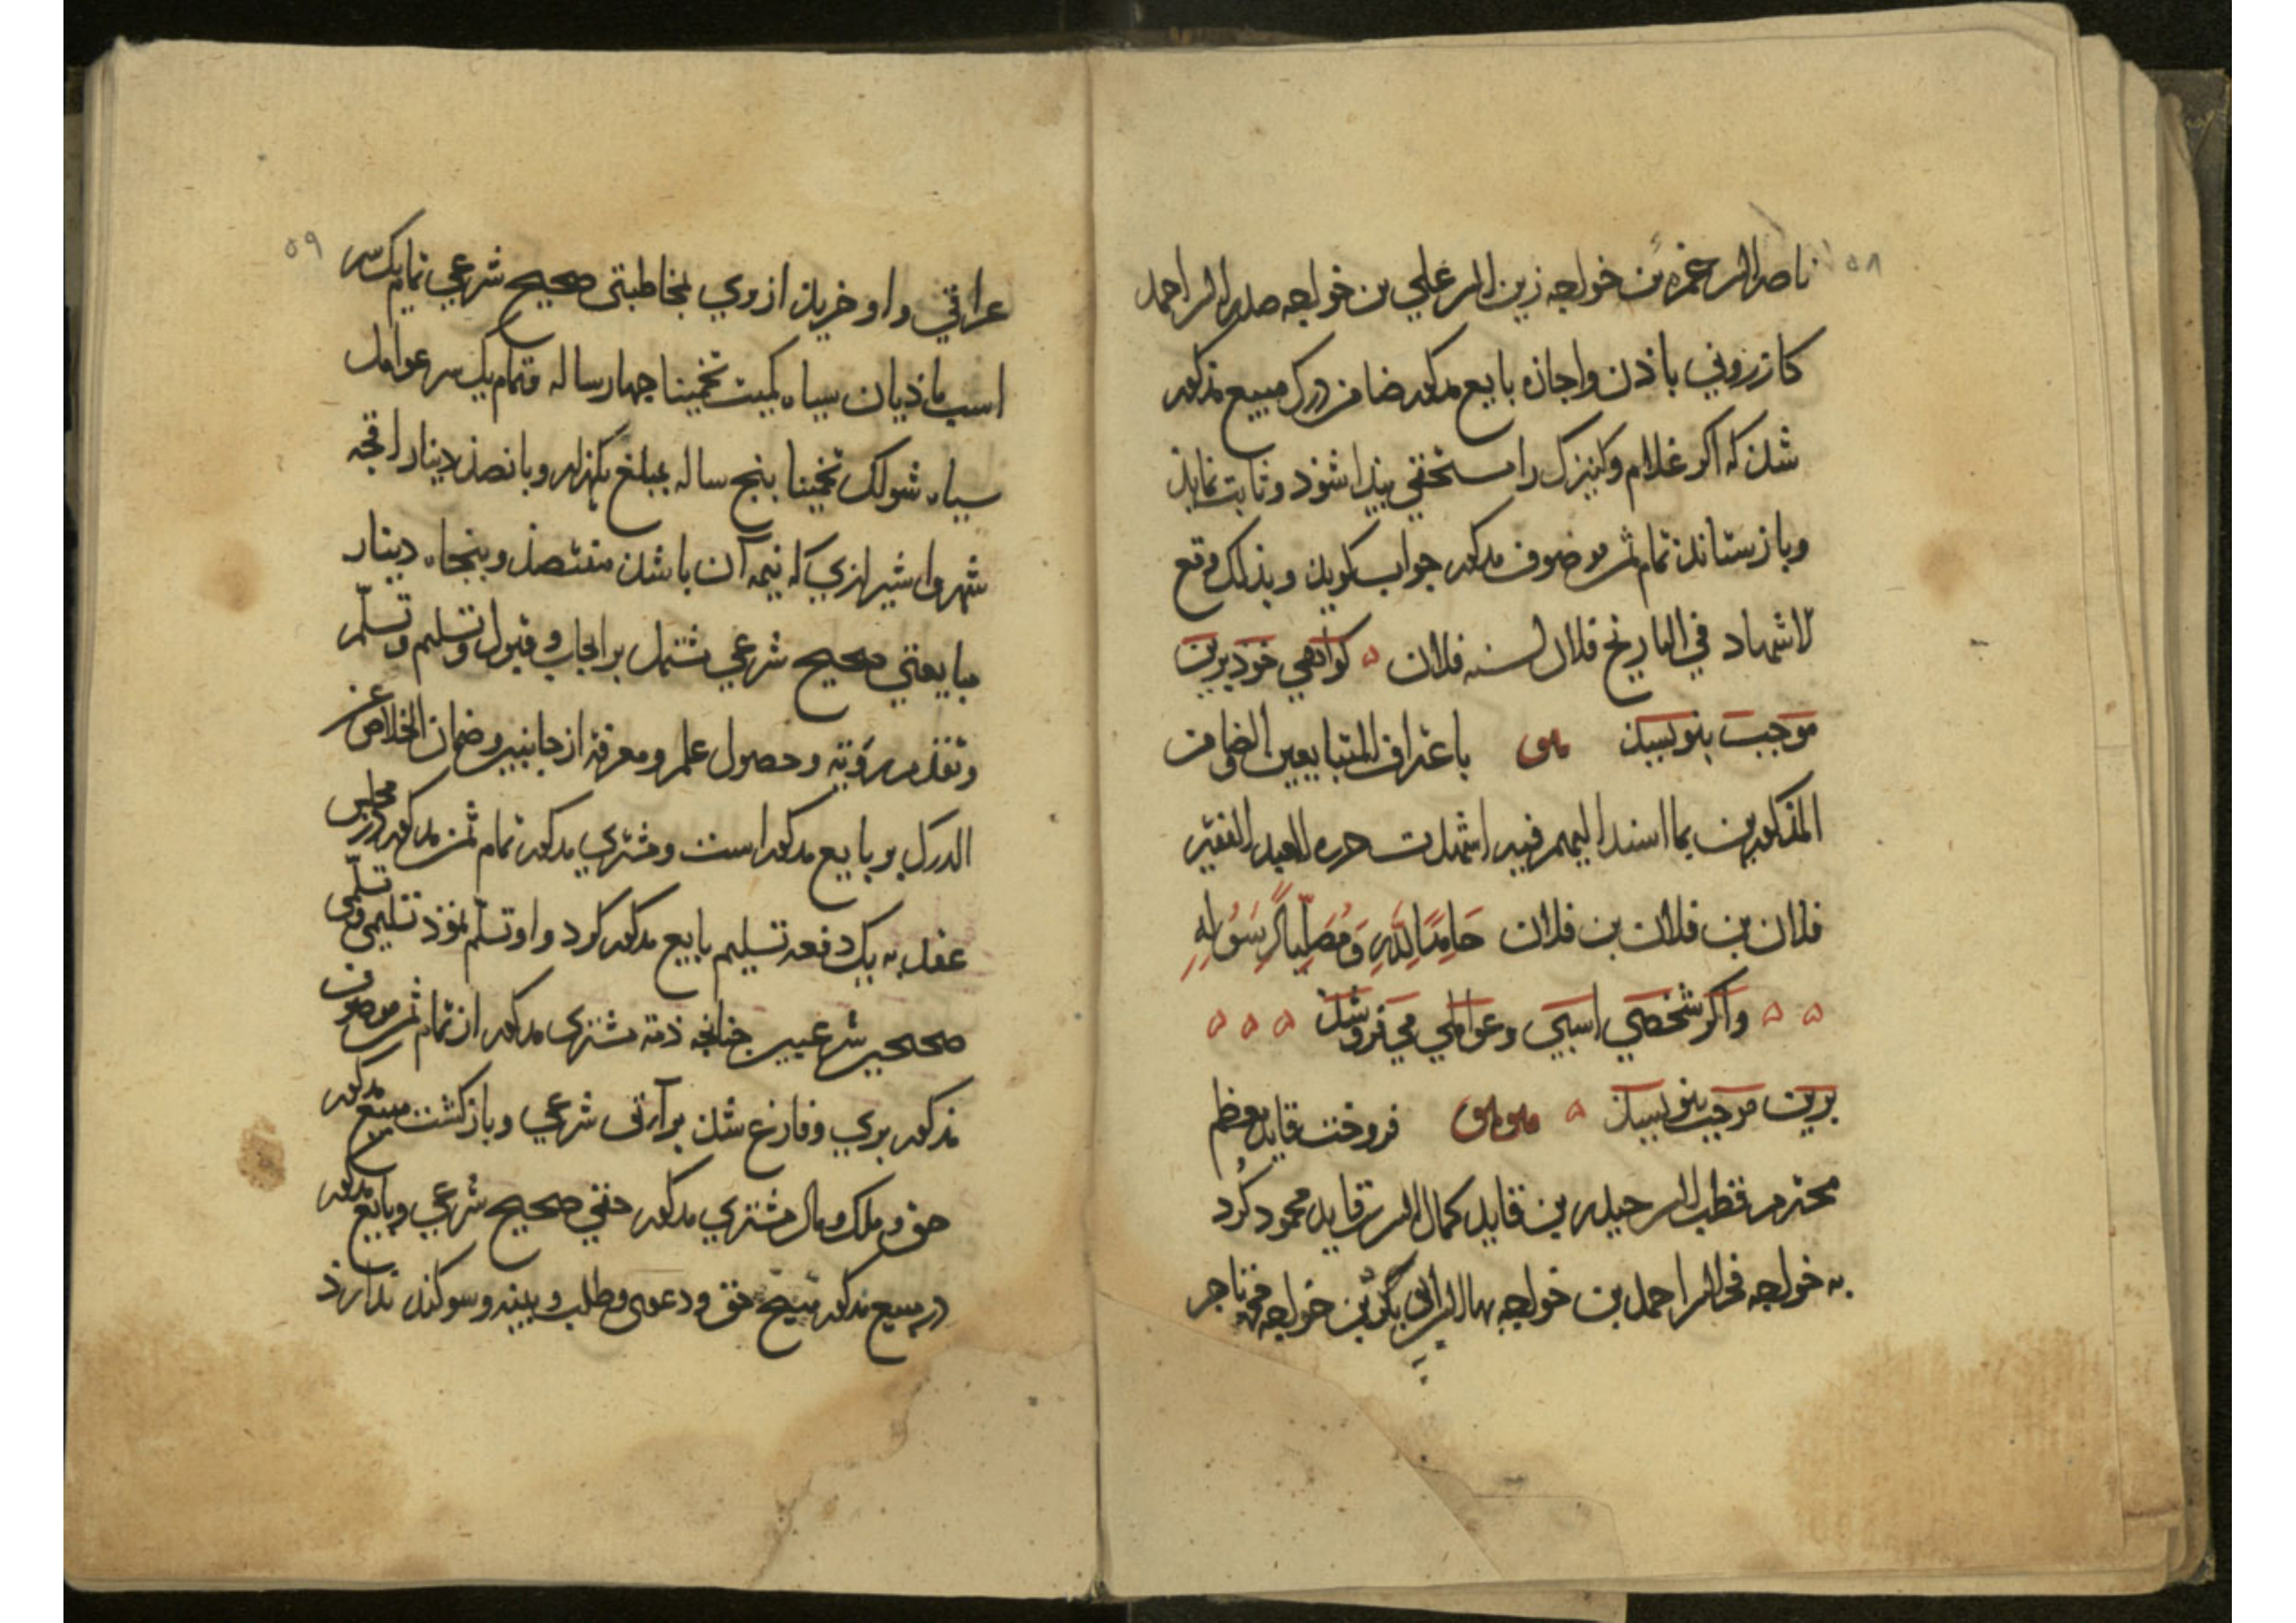 ۵۸
ناصرالدین حمزه بن خواجه زین الدین علي بن خواجه صدرالدین احمد
کازروني باذن واجازه بایع مذکور ضامن درک مبیع مذکور
شد که اکر غلام وکنیزک را مستحقي بیدا شوذ وثابت نماید
وبازستاند تمام ثمن موصوف مذکور جواب کوید وبذلک وقع
الاشهاد في التاریخ فلان لسنه فلان کواهي خود برین
موجب بنویسد باعتراف المتبایعین والضامن
المذکورین بما اسند الیهم فیه اشهدت حرره العبد الفقیر
فلان بن فلان بن فلان حَامِدًا لِلّهِ وَمُصَلِّیاً لِرَسُولِهِ
واکر شخصي اسبي وعواملي مي فروشد
برین موجب بنویسد فروخت قاید معظم
محترم قطب الدین حیدر بن قاید کمال الدین بن قاید محمود کُرد
به خواجه فخرالدین احمد بن خواجه بهاالدین ابي بکر بن خواجه تاجر
۵۹
عراقي واو خرید از وي بمخاطبتی صحیح شرعي تمام یک سر
اسب ماذیان سیاه کمیت تخمینا جهار ساله وتمام یک سر عوامل
سیاه شولک تخمینا بنج ساله بمبلغ یکهزار وبانصد دینار اقجه
شهروا شیرازي که نیمه آن باشد هفتصد وبنجاه دینار
مبایعتي صحیح شرعي مشتمل بر ایجاب وقبول وتسلیم وتسلّم
وتقدم رؤیته وحصول علم ومعرفه از جانبین وضمان الخلاص عن
الدرک بر بایع مذکور است ومشتري مذکور تمام ثمن مذکور در مجلس
عقد به یک دفعه تسلیم بایع مذکور کرد واو تسلّم نموذ تسلیمي وتسلّمی
صحیحین شرعیین جنانجه ذمه مشتری مذکور از تمام ثمن موصوف
مذکور بري وفارغ شد برآتی شرعي وبازکشت مبیع مذکور
حق وملک ومال مشتري مذکور حقي صحیح شرعي وبایع مذکور
در مبیع مذکور هیج حق ودعوی وطلب وبینه وسوکند ندارذ